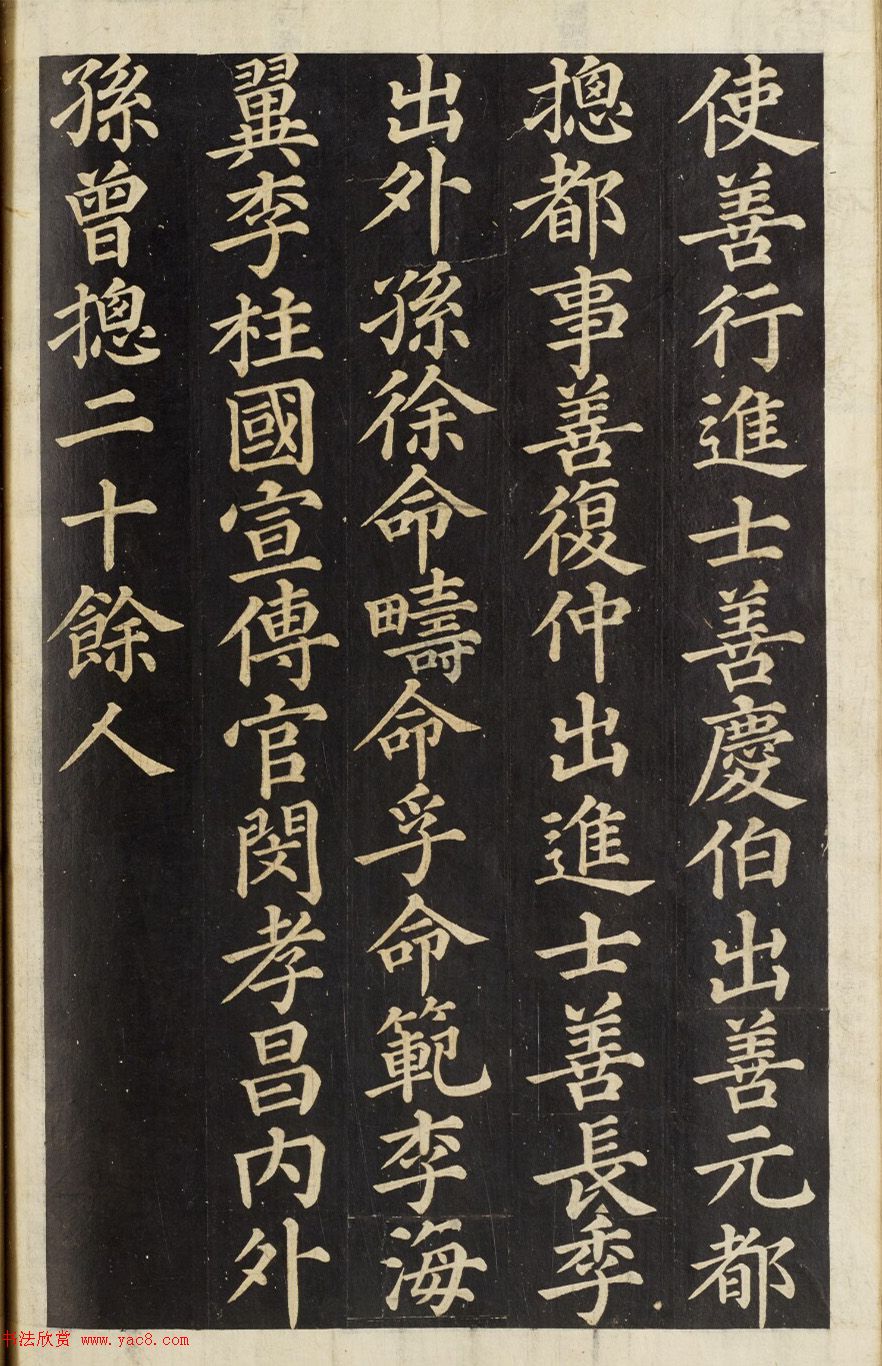 使善行進士善慶伯出善元都
摠都事善復仲出進士善長季
出外孫徐命疇命孚命範李海
翼李柱國宣傳官閔孝昌内外
孫曾摠二十餘人
书法欣赏 www.yac8.com